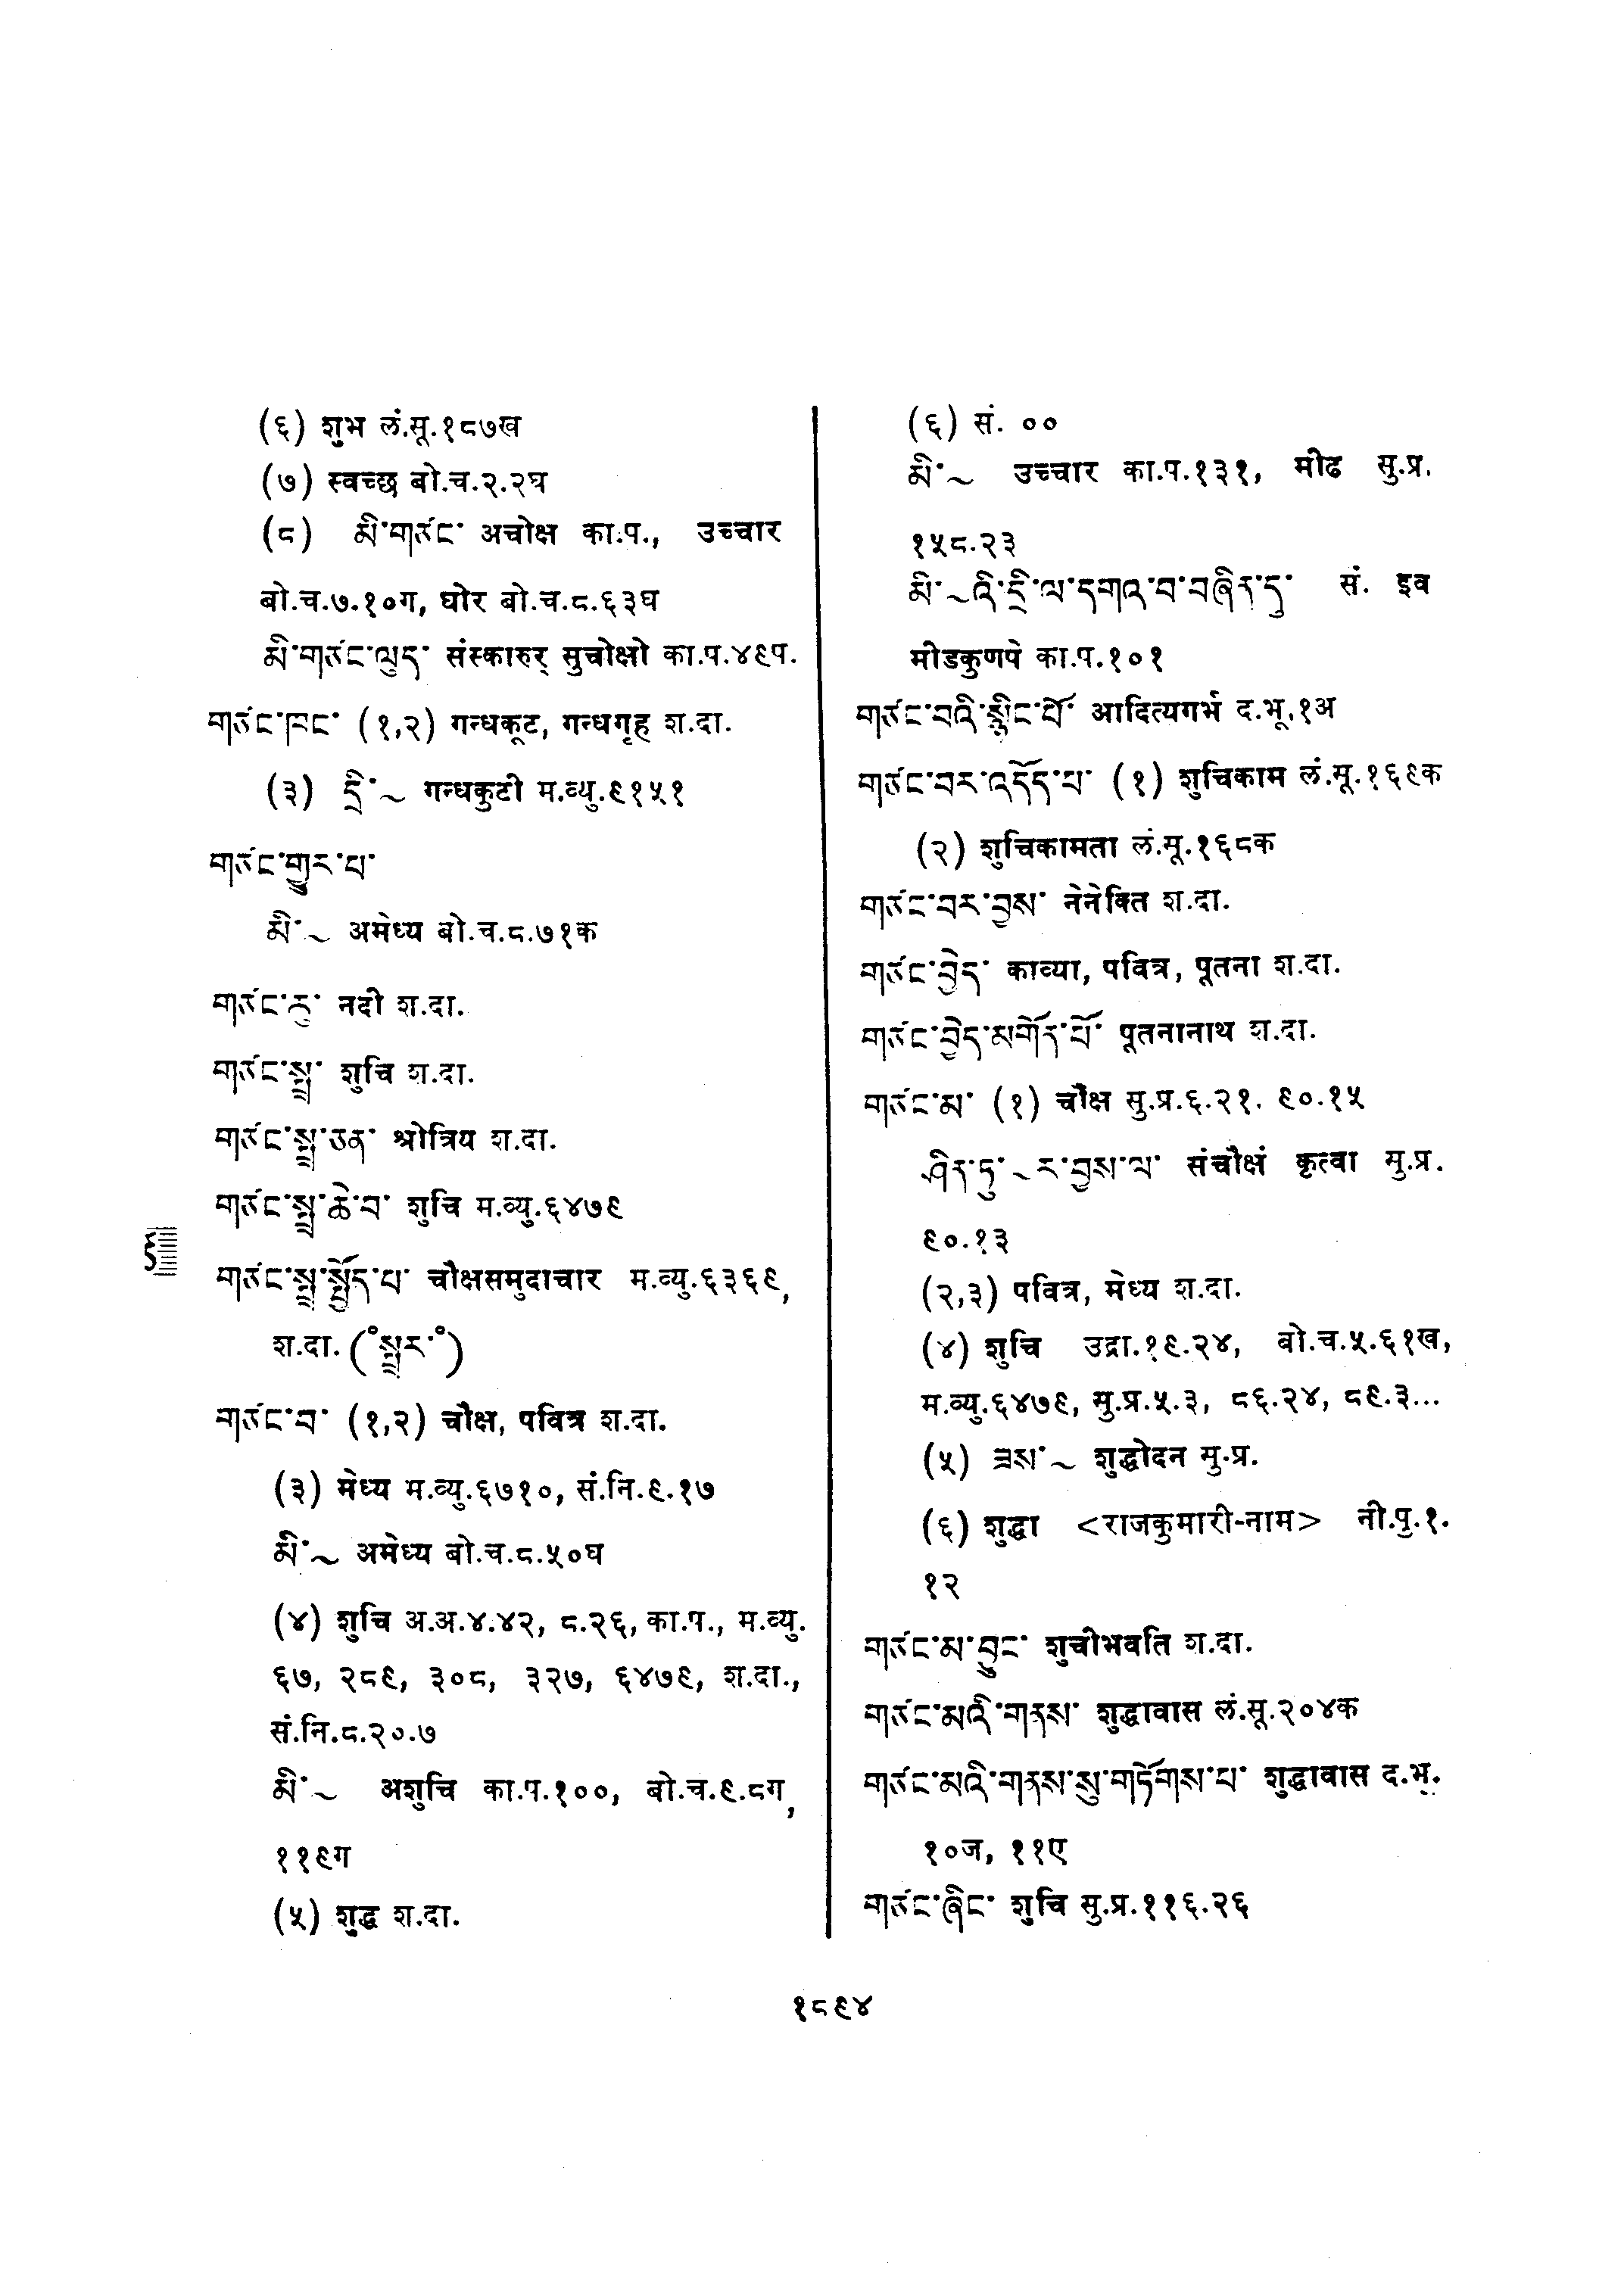 (६) शुभ लं.सू.१८७ख
(७) स्वच्छ बो.च.२.२घ
(८) མི་གཙང་ अचोक्ष का.प., उच्चार
बो.च.७.१०ग, घोर बो.च.८.६३घ
མི་གཙང་ལུད་ संस्कारुर् सुचोक्षो का.प.४९प.
གཙང་ཁང་ (१,२) गन्धकूट, गन्धगृह श.दा.
(३) དྲི་~ गन्धकुटी म.व्यु.९१५१
གཙང་གྱུར་པ་
མི་~ अमेध्य बो.च.८.७१क
གཙང་རུ་ नदी श.दा.
གཙང་སྦྲ་ शुचि श.दा.
གཙང་སྦྲ་ཅན་ श्रोत्रिय श.दा.
གཙང་སྦྲ་ཆེ་བ་ शुचि म.व्यु.६४७९
གཙང་སྦྲ་སྤྱོད་པ་ चौक्षसमुदाचार म.व्यु.६३६९,
श.दा. (°སྦྲར་°)
གཙང་བ་ (१,२) चौक्ष, पवित्र श.दा.
(३) मेध्य म.व्यु.६७१०, सं.नि.९.१७
མི་~ अमेध्य बो.च.८.५०घ
(४) शुचि अ.अ.४.४२, ८.२६, का.प., म.व्यु.
६७, २८९, ३०८, ३२७, ६४७९, श.दा.,
सं.नि.८.२०.७
མི་~ अशुचि का.प.१००, बो.च.९.८ग,
११९ग
(५) शुद्ध श.दा.
(६) सं. ००
མི་~ उच्चार का.प.१३१, मीढ सु.प्र.
१५८.२३
མི་~འི་དྲི་ལ་དགའ་བ་བཞིན་དུ་ सं. इव
मीडकुणपे का.प.१०१
གཙང་བའི་སྙིང་པོ་ आदित्यगर्भ द.भू.१अ
གཙང་བར་འདོད་པ་ (१) शुचिकाम लं.सू.१६९क
(२) शुचिकामता लं.सू.१६८क
གཙང་བར་བྱས་ नेनेक्ति श.दा.
གཙང་བྱེད་ काव्या, पवित्र, पूतना श.दा.
གཙང་བྱེད་མགོན་པོ་ पूतनानाथ श.दा.
གཙང་མ་ (१) चौक्ष सु.प्र.६.२१. ९०.१५
ཤིན་ཏུ་~ར་བྱས་ལ་ संचौक्षं कृत्वा सु.प्र.
९०.१३
(२,३) पवित्र, मेध्य श.दा.
(४) शुचि उद्रा.१९.२४, बो.च.५.६१ख,
म.व्यु.६४७९, सु.प्र.५.३, ८६.२४, ८९.३...
(५) ཟས་~ शुद्धोदन सु.प्र.
(६) शुद्धा <राजकुमारी-नाम> नी.पु.१.
१२
གཙང་མ་བྱུང་ शुचीभवति श.दा.
གཙང་མའི་གནས་ शुद्धावास लं.सू.२०४क
གཙང་མའི་གནས་སུ་གཏོགས་པ་ शुद्धावास द.भू.
१०ज, ११ए
གཙང་ཞིང་ शुचि सु.प्र.११६.२६
१८९४